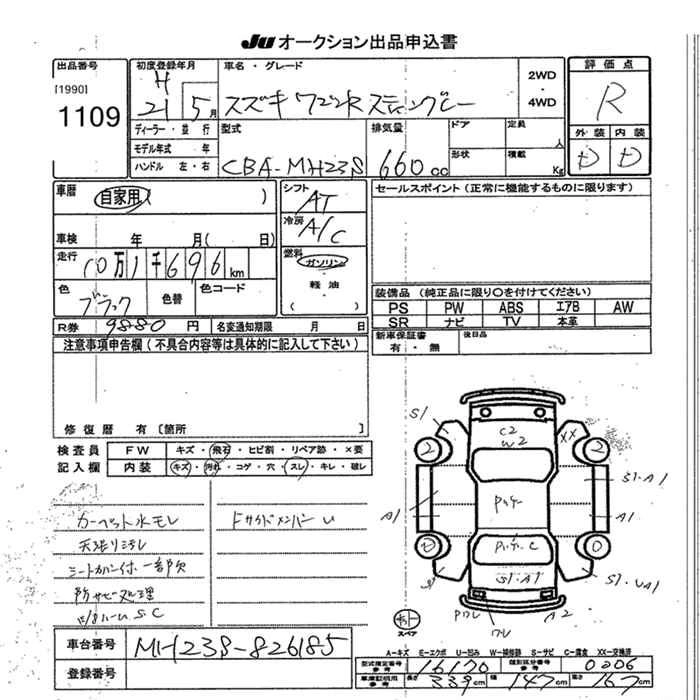 JU オークション出品申込書
出品番号
[1990]
1109
初度登録年月
H
21 5月
ディーラー・並行
モデル年式 年
ハンドル 左・右
車名・グレード
スズキ ワゴンR スティングレー
2WD
・
4WD
評価点
R
外装 内装
D D
型式
CBA-MH23S
排気量
660cc
ドア
定員
人
形状
積載
Kg
車歴
自家用( )
車検 年 月( 日)
走行
10万1千696km
色
ブラック
色替
色コード
シフト
AT
冷房
A/C
燃料
ガソリン
・
軽油
・
( )
R券 9880円
名変通知期限 月 日
セールスポイント(正常に機能するものに限ります)
装備品(純正品に限り○を付けてください)
PS PW ABS エアB AW
SR ナビ TV 本革
新車保証書
有・無
後日品
注意事項申告欄(不具合内容等は具体的に記入して下さい)
修復歴 有〔箇所 〕
検査員
記入欄
FW キズ・飛石・ヒビ割・リペア跡・×要
内装 キズ・汚れ・コゲ・穴・スレ・キレ・破レ
カーペット水モレ
天張りミダレ
シートカバー付、一部欠
防サビ処理
F サイドメンバー U
S1
C2
W2
XX
2
2
S1・A1
A1
A1
S1・A1
S1・UA1
A2
スペア
A-キズ E-エクボ U-凹み W-補修跡 S-サビ C-腐食 XX-交換済
車台番号
MH23S-826185
登録番号
型式指定番号
参考
16170
類別区分番号
参考
0206
車庫証明用
参考
長さ 339cm
幅 147cm
高さ 167cm